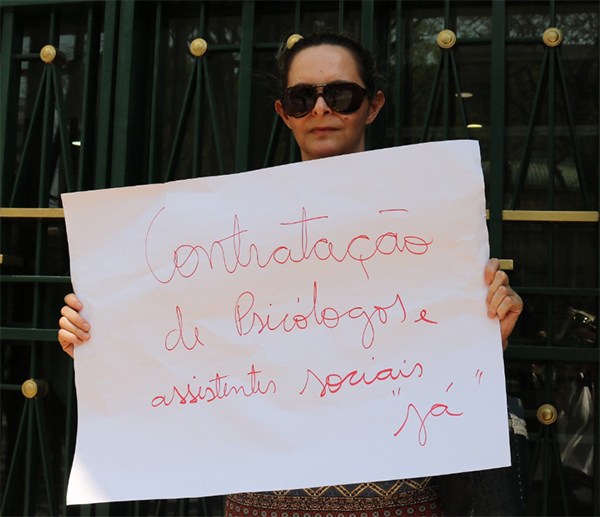 Contratação
de Psicólogos e
assistentes sociais
"já"